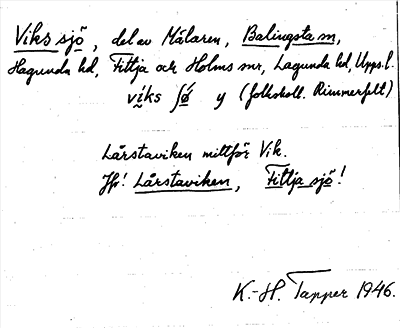 Vikssjö, del av Mälaren, Balingsta sn,
Hagunda hd, Fittja och Holms snr, Lagunda hd, Upps. l.
viks ʃǿ y (folkskoll. Rimmerfelt)
Lårstaviken mittför Vik.
Jfr! Lårstaviken, Fittja sjö!
K.-H. Tapper 1946.